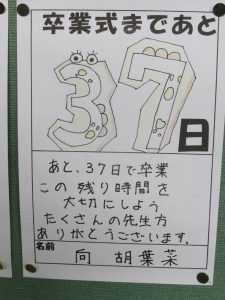 卒業式まであと
37
日
あと、37日で卒業
この残り時間を
大切にしよう
たくさんの先生方
ありがとうございます。
名前
向 胡葉菜